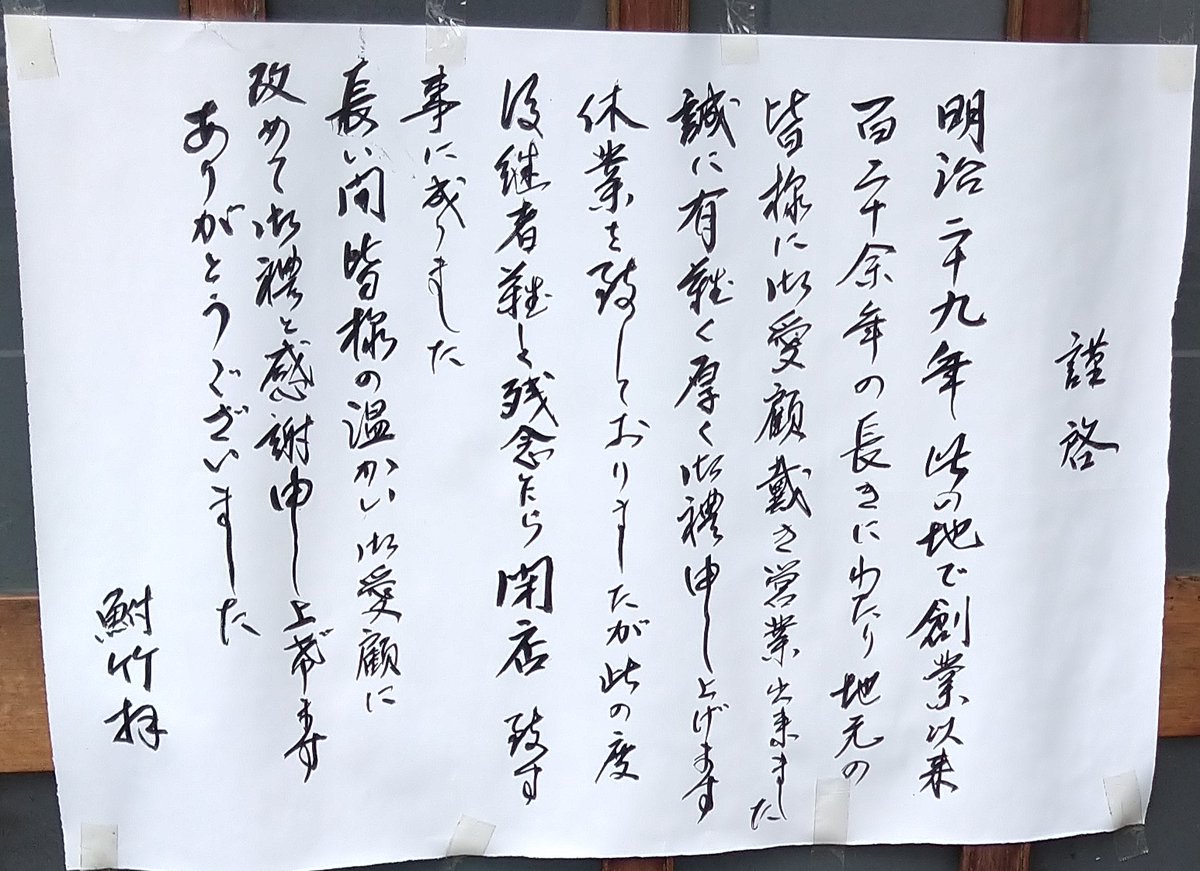 謹啓
明治二十九年此の地で創業以来
百二十余年の長きにわたり地元の
皆様に御愛顧戴き営業出来ました
誠に有難く厚く御禮申し上げます
休業を致しておりましたが此の度
後継者難しく残念乍ら閉店 致す
事に成りました
長い間皆様の温かい御愛顧に
改めて御禮と感謝申し上げます
ありがとうございました
鮒竹拝